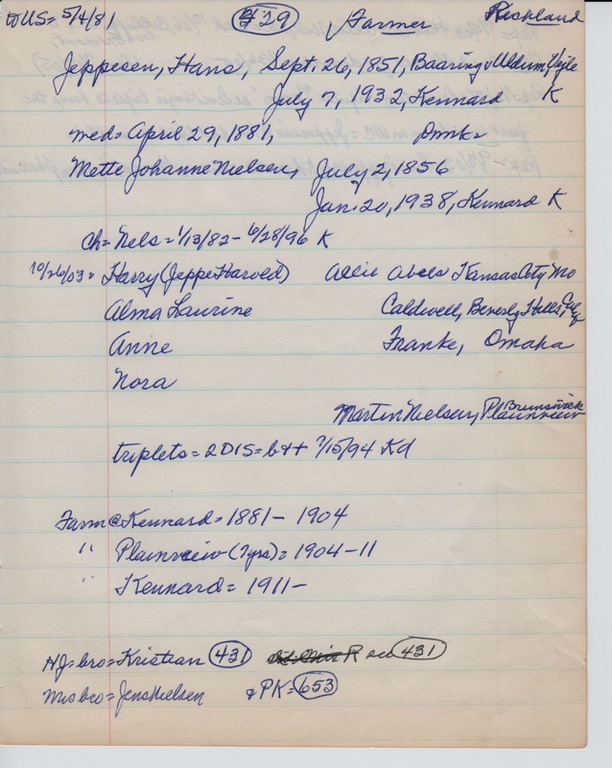 WUS= 5/4/81 429 Farmer Richland
Jeppesen, Hans, Sept. 26, 1851, Baaring v Uldum, Vejle
July 7, 1932, Kennard K
med= April 29, 1881, Dmk
Mette Johanne Nielsen, July 2, 1856
Jan. 20, 1938, Kennard K
Ch= Nels= 1/13/82 - 6/28/96 K
10/26/03= Harry (Jeppe Harved) Allie Abels Kansas City Mo
Alma Laurine Caldwell, Beverly Hills,
Anne Franke, Omaha
Nora
Martin Nielsen, Plainview Brunswick
triplets= 2D1S= b++ 7/15/94 Kd
Farm @ Kennard= 1881- 1904
" Plainview (7yrs)= 1904-11
" Kennard= 1911-
HJ=bro= Kristian 431 R see 431
Mrs bro= Jens Nielsen & PK= 653